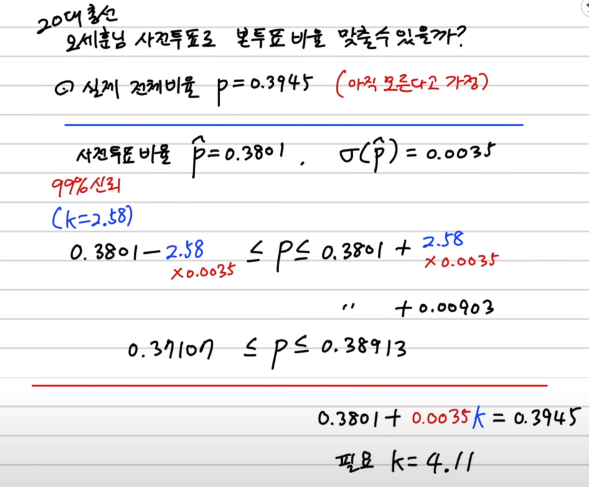 20대 총선
오세훈님 사전투표로 본투표 비율 맞출수 있을까?
⊙ 실제 전체비율 p=0.3945 (아직 모른다고 가정)
사전투표 비율 p̂=0.3801, σ(p̂)=0.0035
99%신뢰
(k=2.58)
0.3801-2.58×0.0035 ≤ p ≤ 0.3801+2.58×0.0035
〃 +0.00903
0.37107 ≤ p ≤ 0.38913
0.3801+0.0035k=0.3945
필요 k=4.11